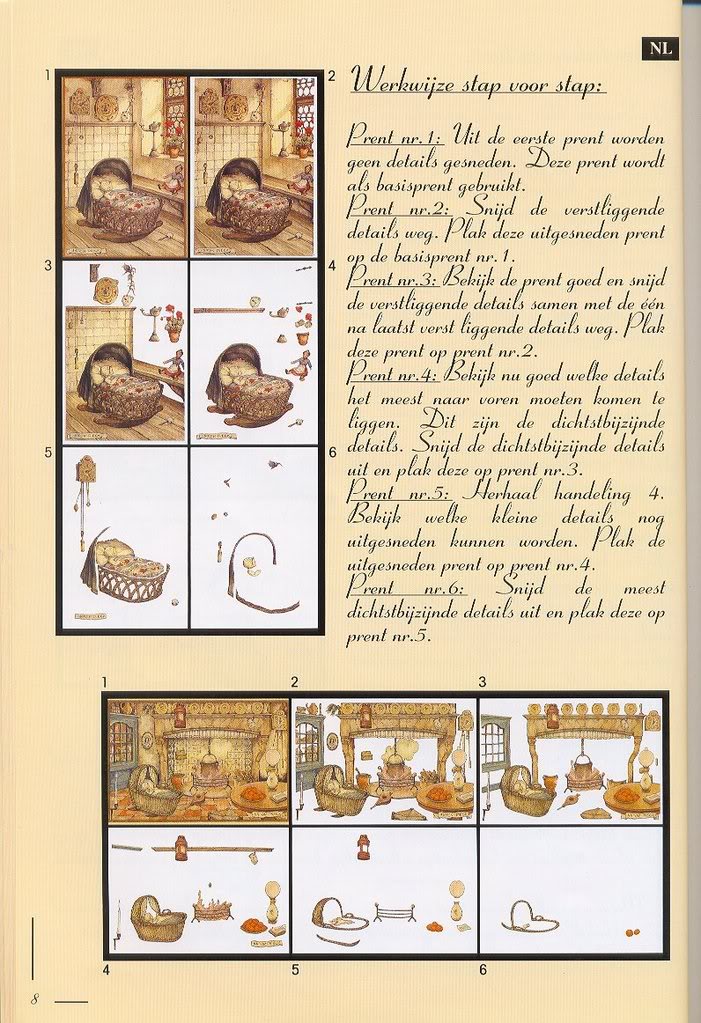 NL
1
2
Werkwijze stap voor stap:
Prent nr.1: Uit de eerste prent worden
geen details gesneden. Deze prent wordt
als basisprent gebruikt.
Prent nr.2: Snijd de verstliggende
details weg. Plak deze uitgesneden prent
op de basisprent nr.1.
3
4
Prent nr.3: Bekijk de prent goed en snijd
de verstliggende details samen met de één
na laatst verst liggende details weg. Plak
deze prent op prent nr.2.
Prent nr.4: Bekijk nu goed welke details
het meest naar voren moeten komen te
liggen. Dit zijn de dichtstbijzijnde
details. Snijd de dichtstbijzijnde details
uit en plak deze op prent nr.3.
5
6
Prent nr.5: Herhaal handeling 4.
Bekijk welke kleine details nog
uitgesneden kunnen worden. Plak de
uitgesneden prent op prent nr.4.
Prent nr.6: Snijd de meest
dichtstbijzijnde details uit en plak deze op
prent nr.5.
1
2
3
4
5
6
8